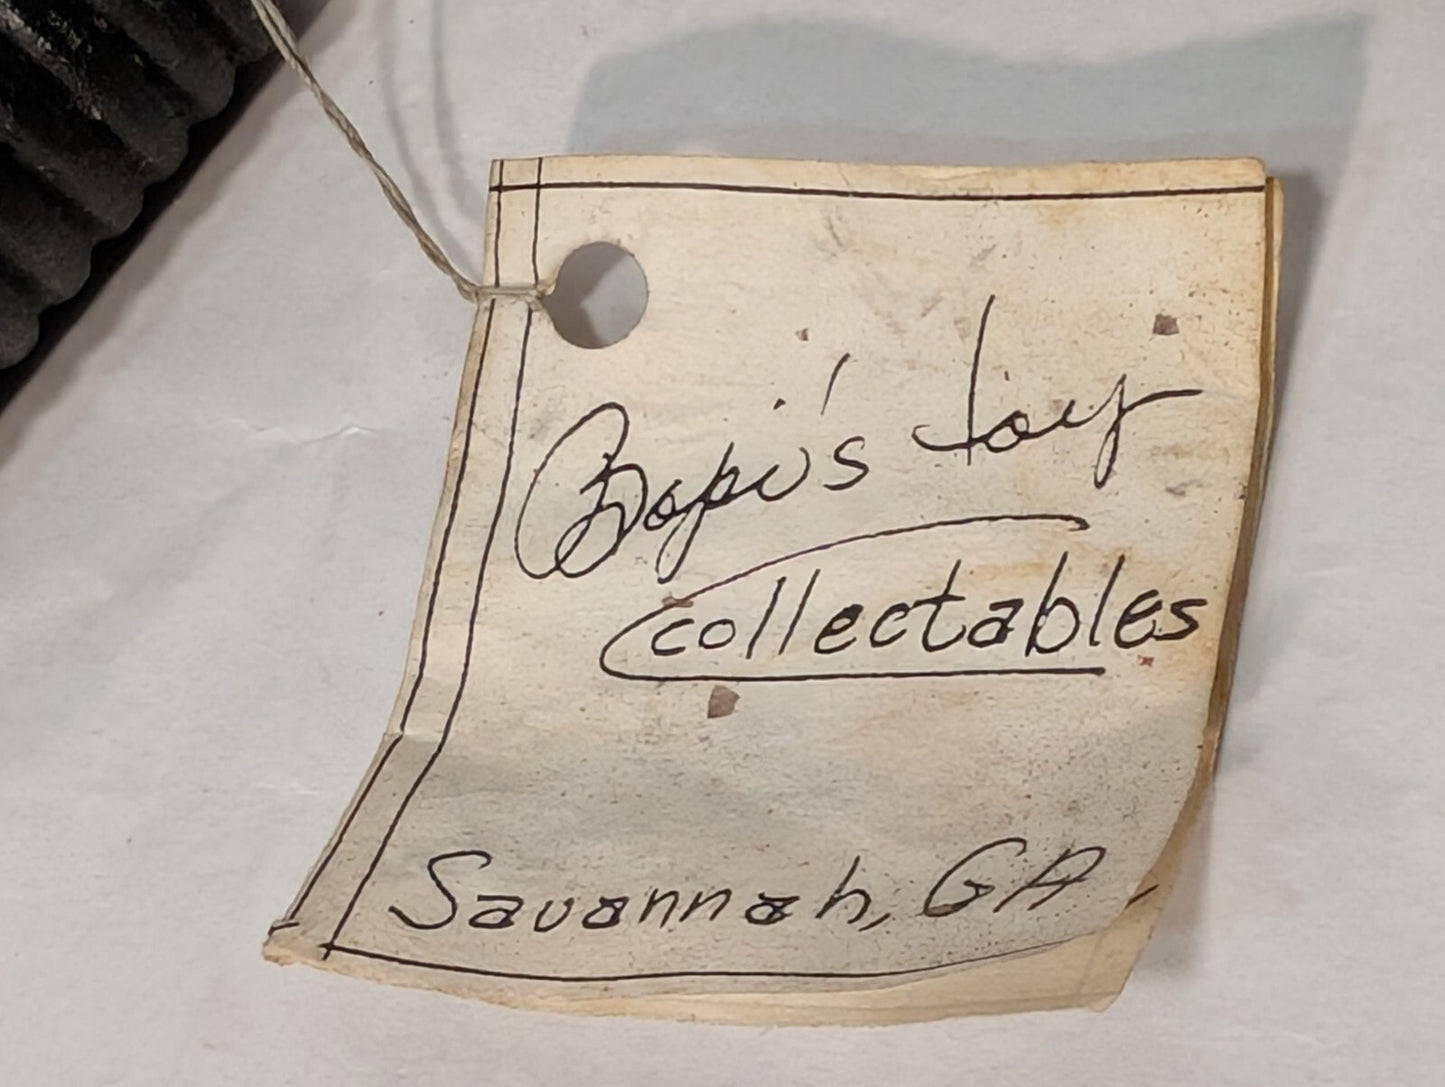 Bopi's toy
collectables
Savannah, GA